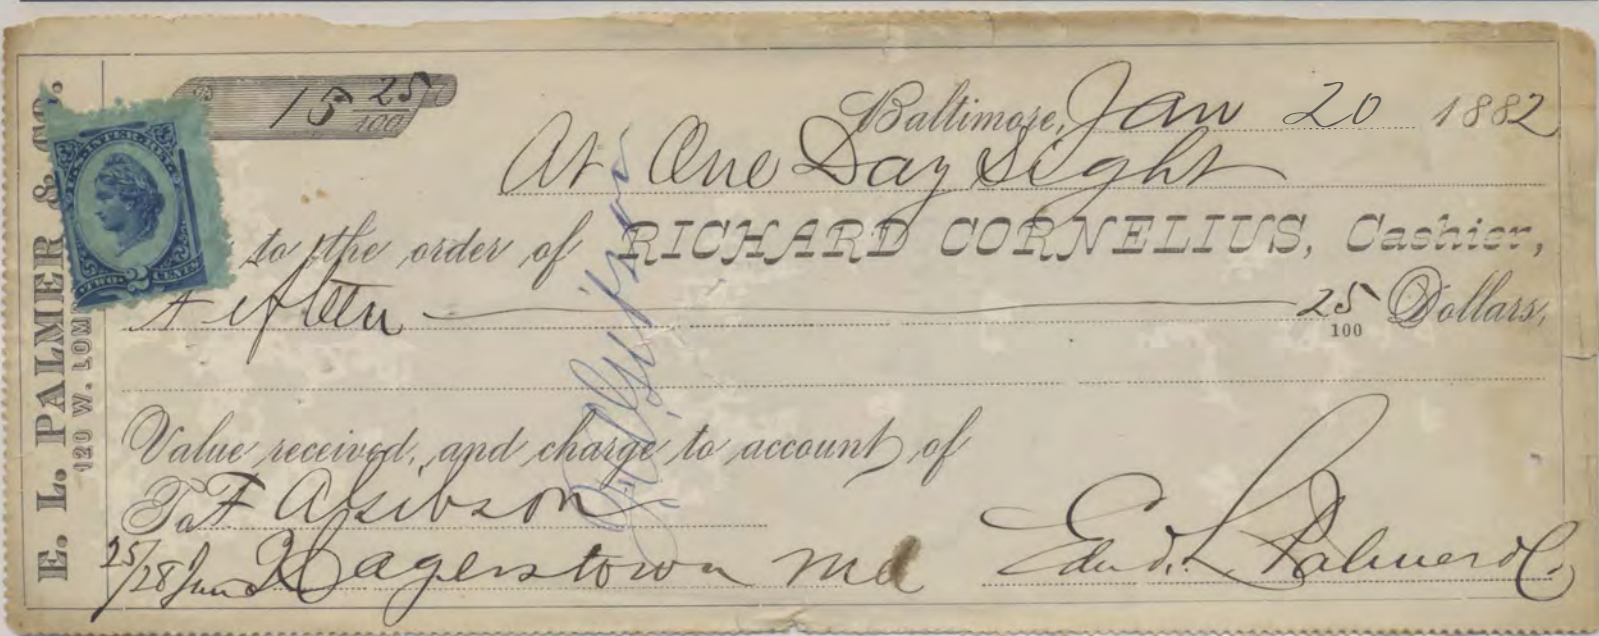 E. L. PALMER & CO.
120 W. LOM
U.S. INTER. REV.
TWO 2 CENTS
15 25/100
Baltimore, Jan 20 1882
At One Day Sight
to the order of RICHARD CORNELIUS, Cashier,
Fifteen 25/100 Dollars,
Value received, and charge to account of
To F A Gibson
Hagerstown Md
25/28 Jan
Edwd. L. Palmer & Co.
F A Gibson